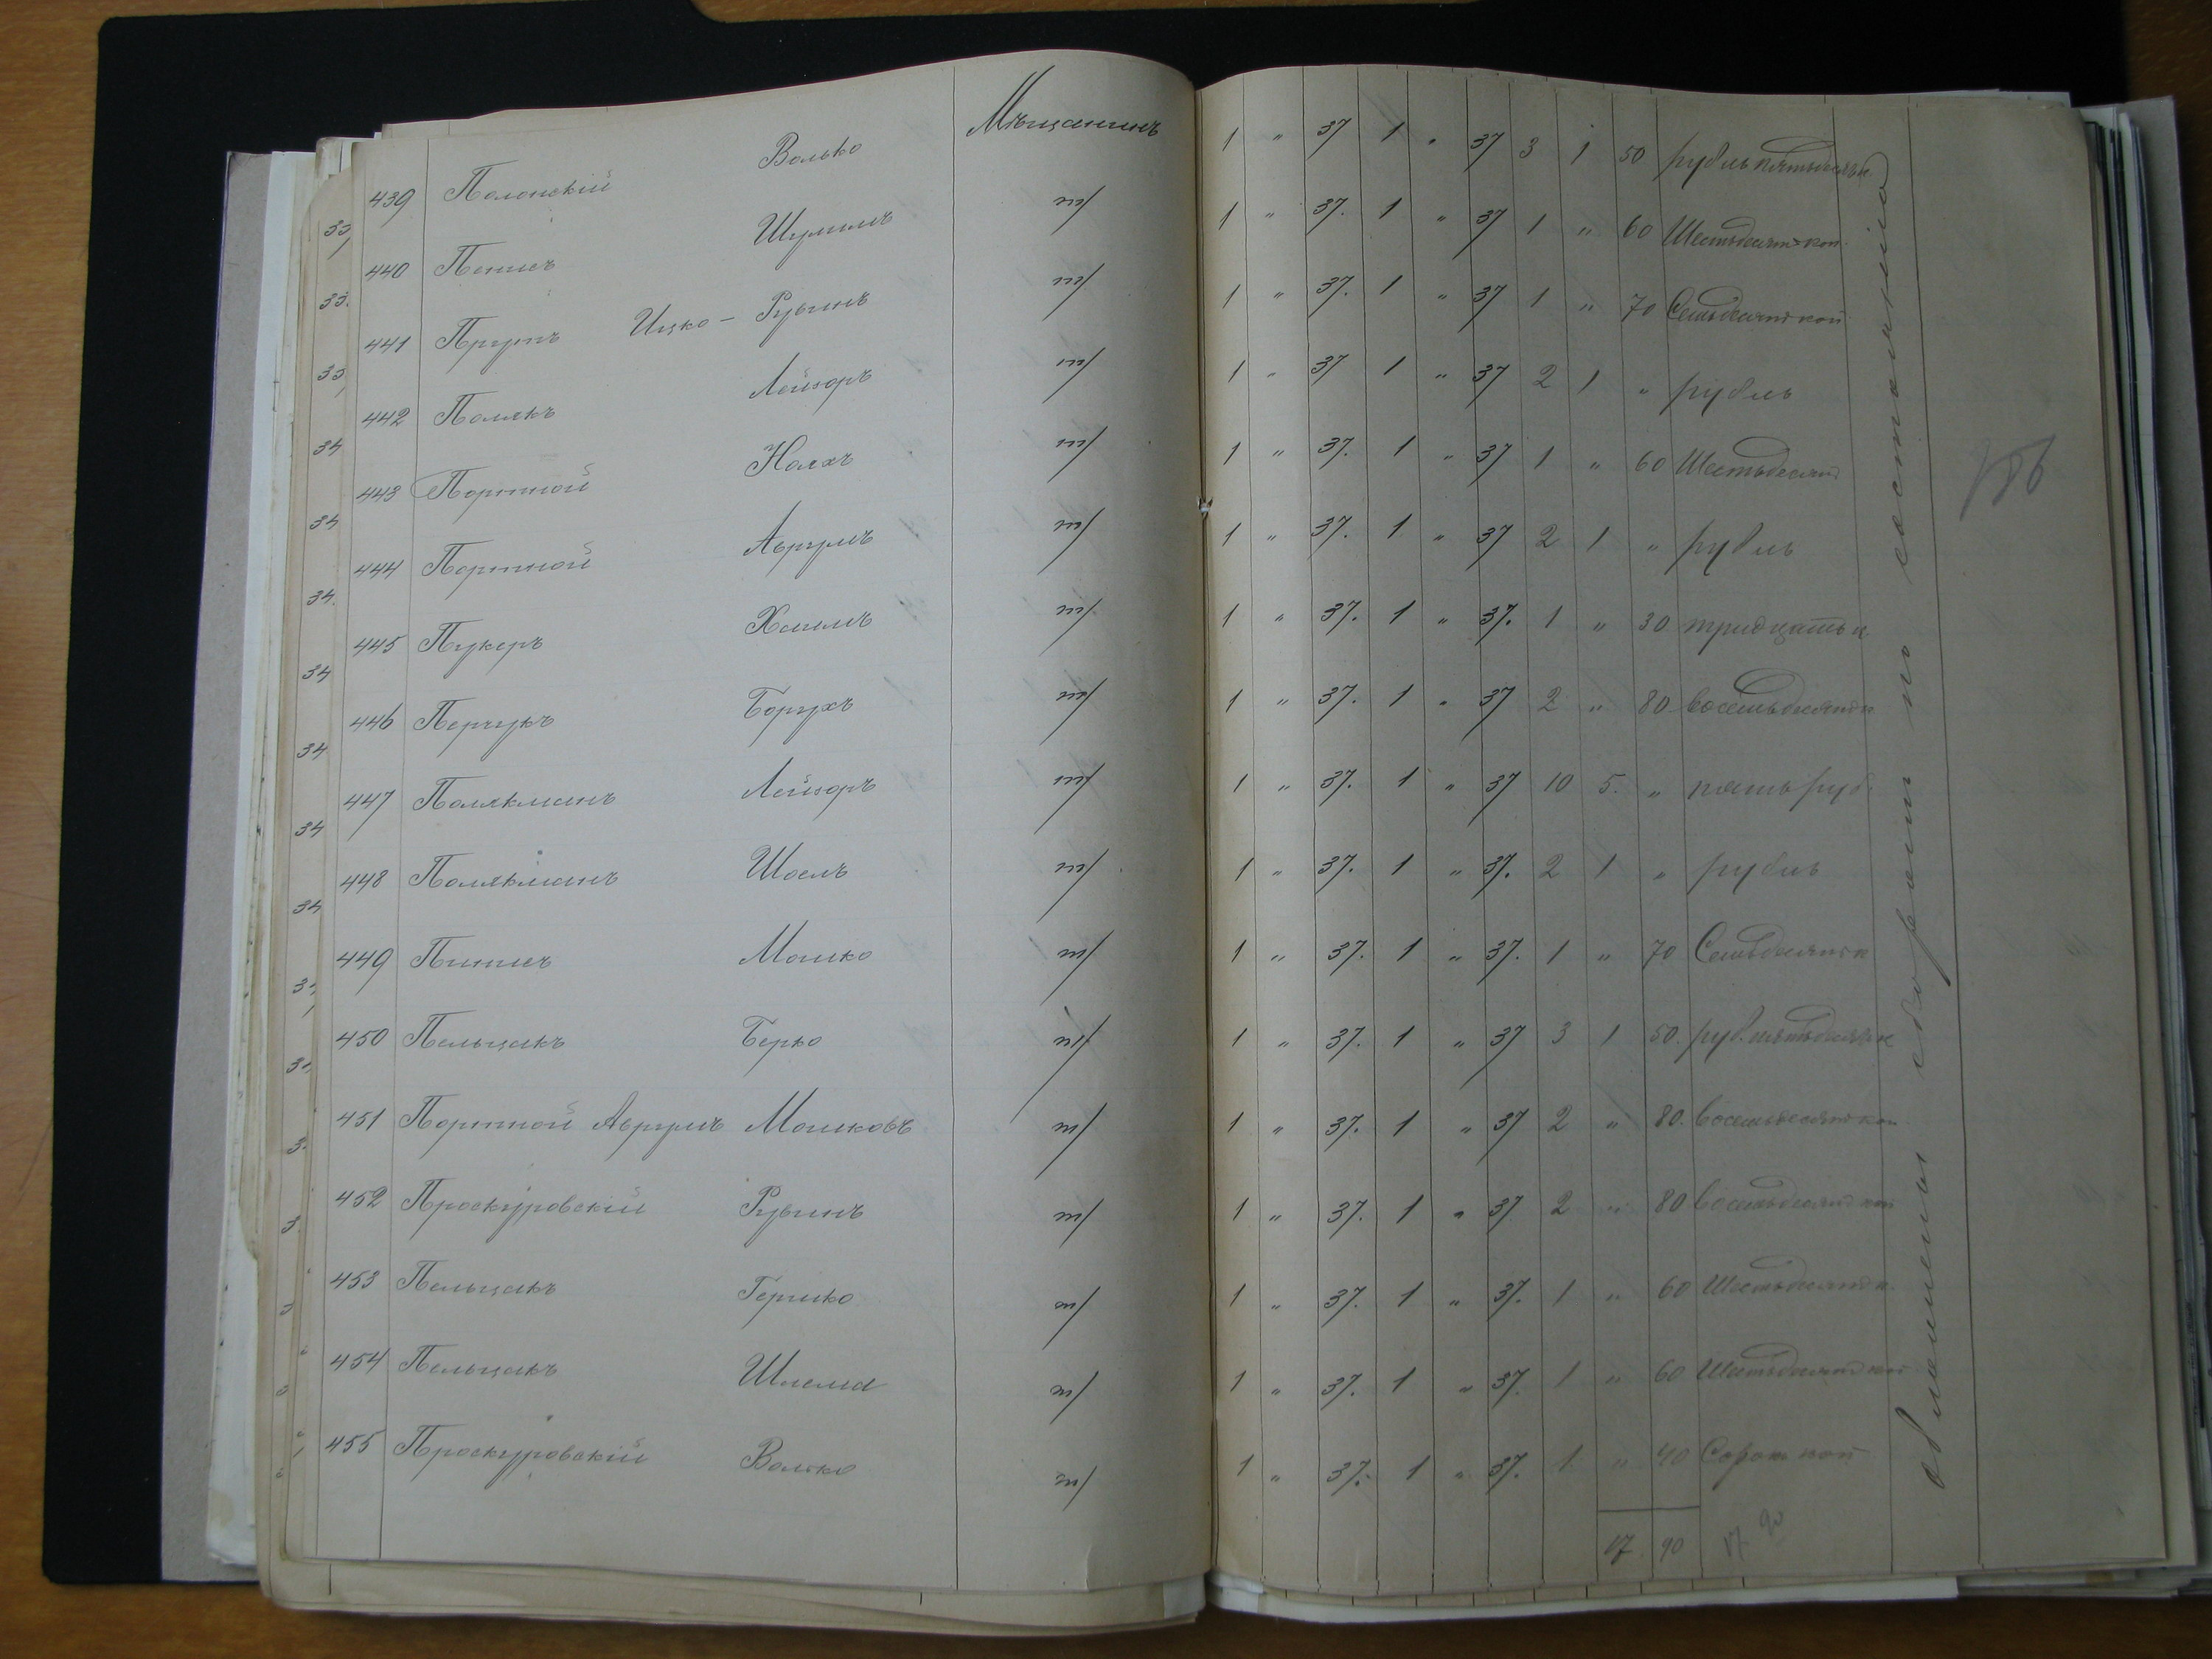 439 Полонскій Волько Мѣщанинъ 1 " 37 1 " 37 3 1 50 рубль пятьдесятъ к
440 Шулимъ т/ 1 " 37. 1 " 37 1 " 60 Шестьдесятъ коп.
441 Прупъ Ицко - Рувинъ т/ 1 " 37. 1 " 37 1 " 70 Семьдесятъ коп
442 Полякъ Лейзоръ т/ 1 " 37 1 " 37 2 1 " рубль
443 Портной т/ 1 " 37. 1 " 37 1 " 60 Шестьдесят
444 Портной Аврумъ т/ 1 " 37. 1 " 37 2 1 " рубль
445 Пукеръ Хаимъ т/ 1 " 37. 1 " 37. 1 " 30 тридцать к
446 Перчукъ Борухъ т/ 1 " 37. 1 " 37 2 " 80 восемьдесятъ к
447 Поляkманъ Лейзоръ т/ 1 " 37. 1 " 37 10 5. " пять руб.
448 Поляkманъ Шоелъ т/ 1 " 37. 1 " 37. 2 1 " рубль
449 Мошко т/ 1 " 37. 1 " 37. 1 " 70 Семьдесятъ к
450 Пельцакъ Берко т/ 1 " 37. 1 " 37 3 1 50. руб. пятьдесятъ к
451 Портной Аврумъ Мошковъ т/ 1 " 37. 1 " 37 2 " 80. восемьдесятъ коп.
452 Проскуровскій Рувинъ т/ 1 " 37. 1 " 37 2 " 80 восемьдесят коп
453 Пельцакъ Гершко т/ 1 " 37. 1 " 37. 1 " 60 Шестьдесят к.
454 Пельцакъ Шлема т/ 1 " 37. 1 " 37. 1 " 60 Шестьдесят коп
455 Проскуровскій Волько т/ 1 " 37. 1 " 37. 1 " 40 Сорок коп
17 90 17 90